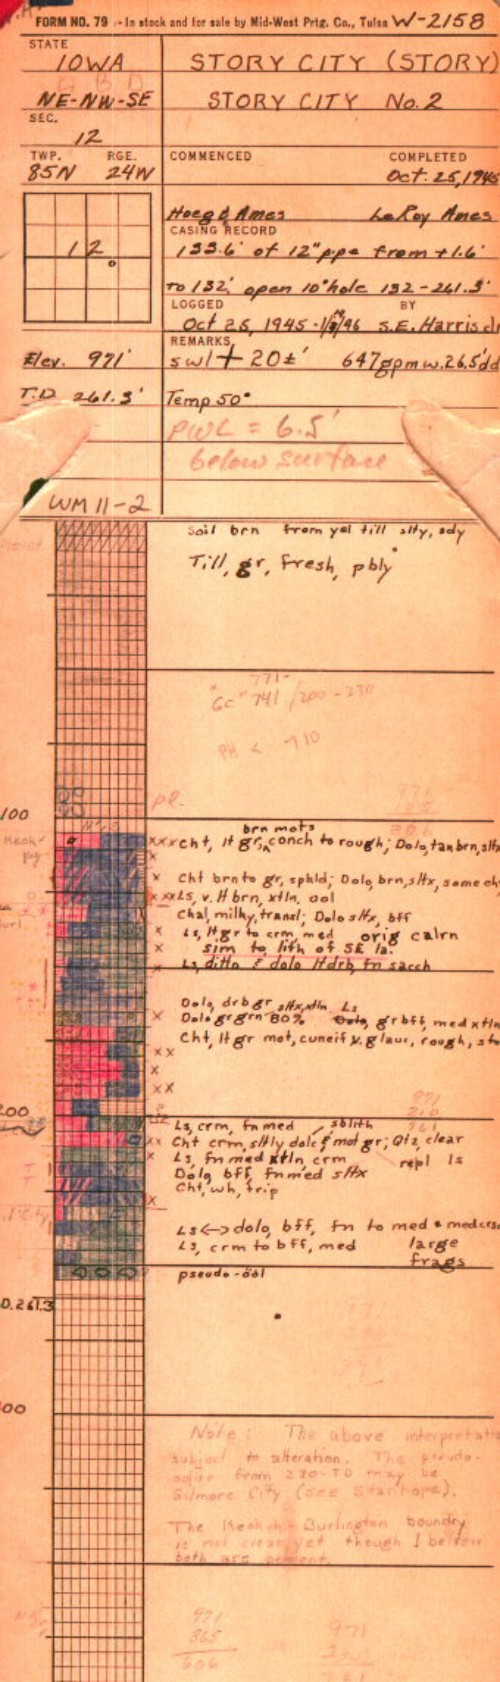 FORM NO. 79 -- In stock and for sale by Mid-West Prtg. Co., Tulsa W-2158
STATE
IOWA STORY CITY (STORY)
NE-NW-SE STORY CITY No. 2
SEC.
12
TWP. RGE. COMMENCED COMPLETED
85N 24W Oct. 25, 1945
Hoeg & Ames LeRoy Ames
CASING RECORD
12 133.6' of 12" pipe from +1.6'
to 132', open 10" hole 132-261.3'
LOGGED BY
Oct 25, 1945 S.E. Harris Jr
REMARKS
Elev. 971' swl + 20±' 647gpm w. 26.5'dd
T.D. 261.3' Temp 50°
PWL = 6.5'
below surface
WM 11-2
Soil brn from yel till slty, sdy
Till, gr, fresh, pbly
771-
"Gc" 741 / 200-230
100
brn mots
xxx Cht, lt gr, conch to rough; Dolo, tan brn, sltx
Cht brn to gr, sphld; Dolo, brn, sltx, some ch
xxx Ls, v. lt brn, xtln, ool
Chal, milky, transl; Dolo sltx, bff
Ls, lt gr to crm, med orig calrn
sim to lith of SE Ia.
Ls, ditto & dolo lt drb, fn sacch
Dolo, drb gr sltx, xtln Ls
Dolo gr grn 80% gr bff, med xtln
Cht, lt gr mot, cuneif v. glauc, rough,
xx
200
Ls, crm, fn med sblith
xx Cht crm, sltly dolc & mot gr; Qtz, clear
Ls, fn med xtln, crm repl ls
Dolo bff, fn med sltx
Cht, wh, trip
Ls <-> dolo, bff, fn to med & med crs
Ls, crm to bff, med large
frags
pseudo-ööl
D. 261.3
00
Note: The above
subject to alteration. The pseudo-
from 230-TD may be
Gilmore City (see Stanhope).
The Keokuk Burlington boundry
is not clear yet though I
both are present.
971 971
365
606